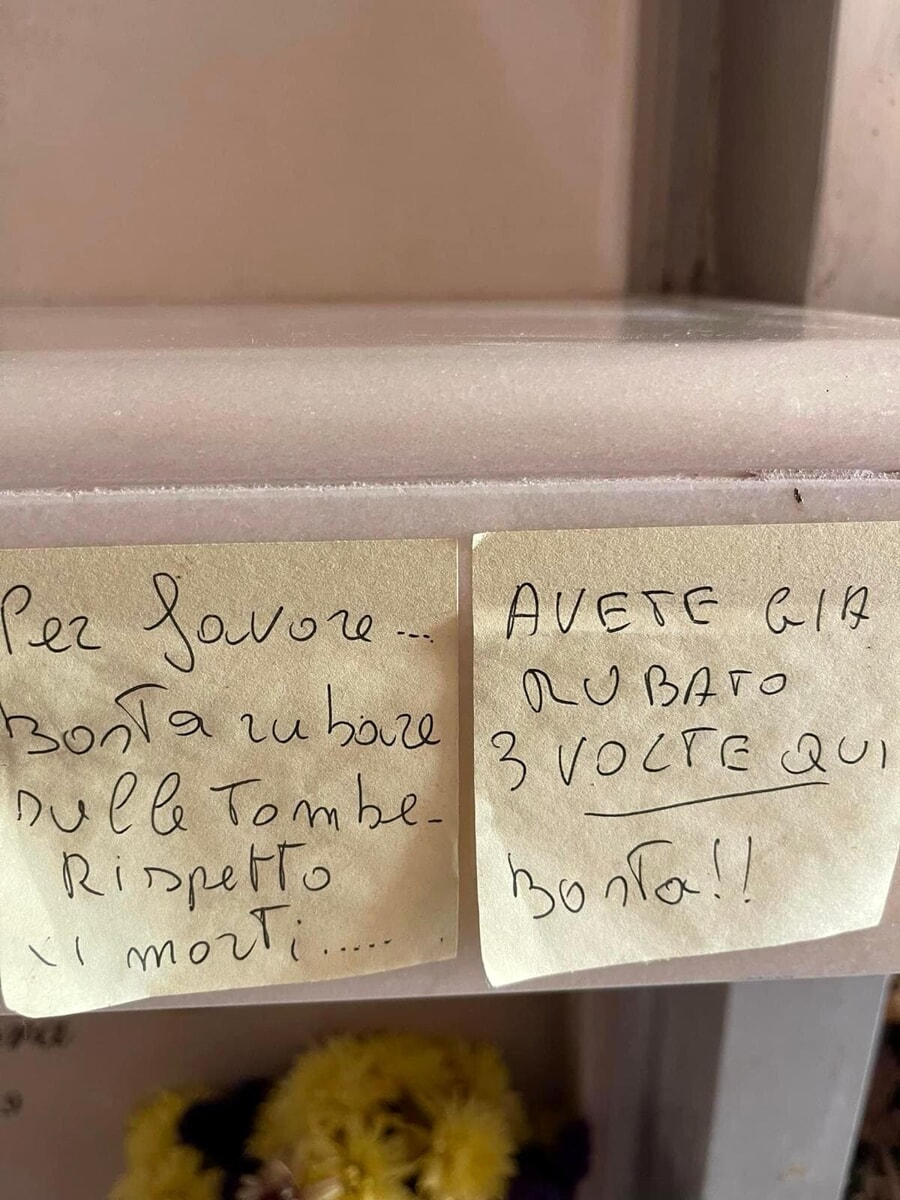 Per favore...
Basta rubare
sulle Tombe-
Rispetto
i morti.....
AVETE GIA
RUBATO
3 VOLTE QUI
Basta!!